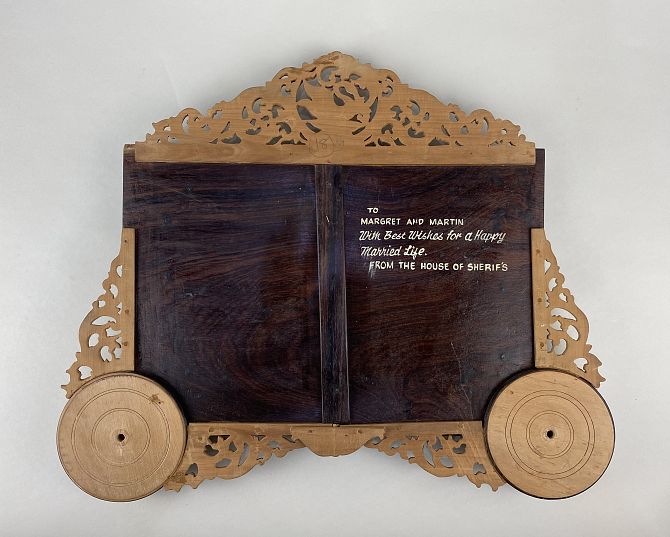 18
TO
MARGRET AND MARTIN
With Best Wishes for a Happy
Married Life.
FROM THE HOUSE OF SHERIF'S